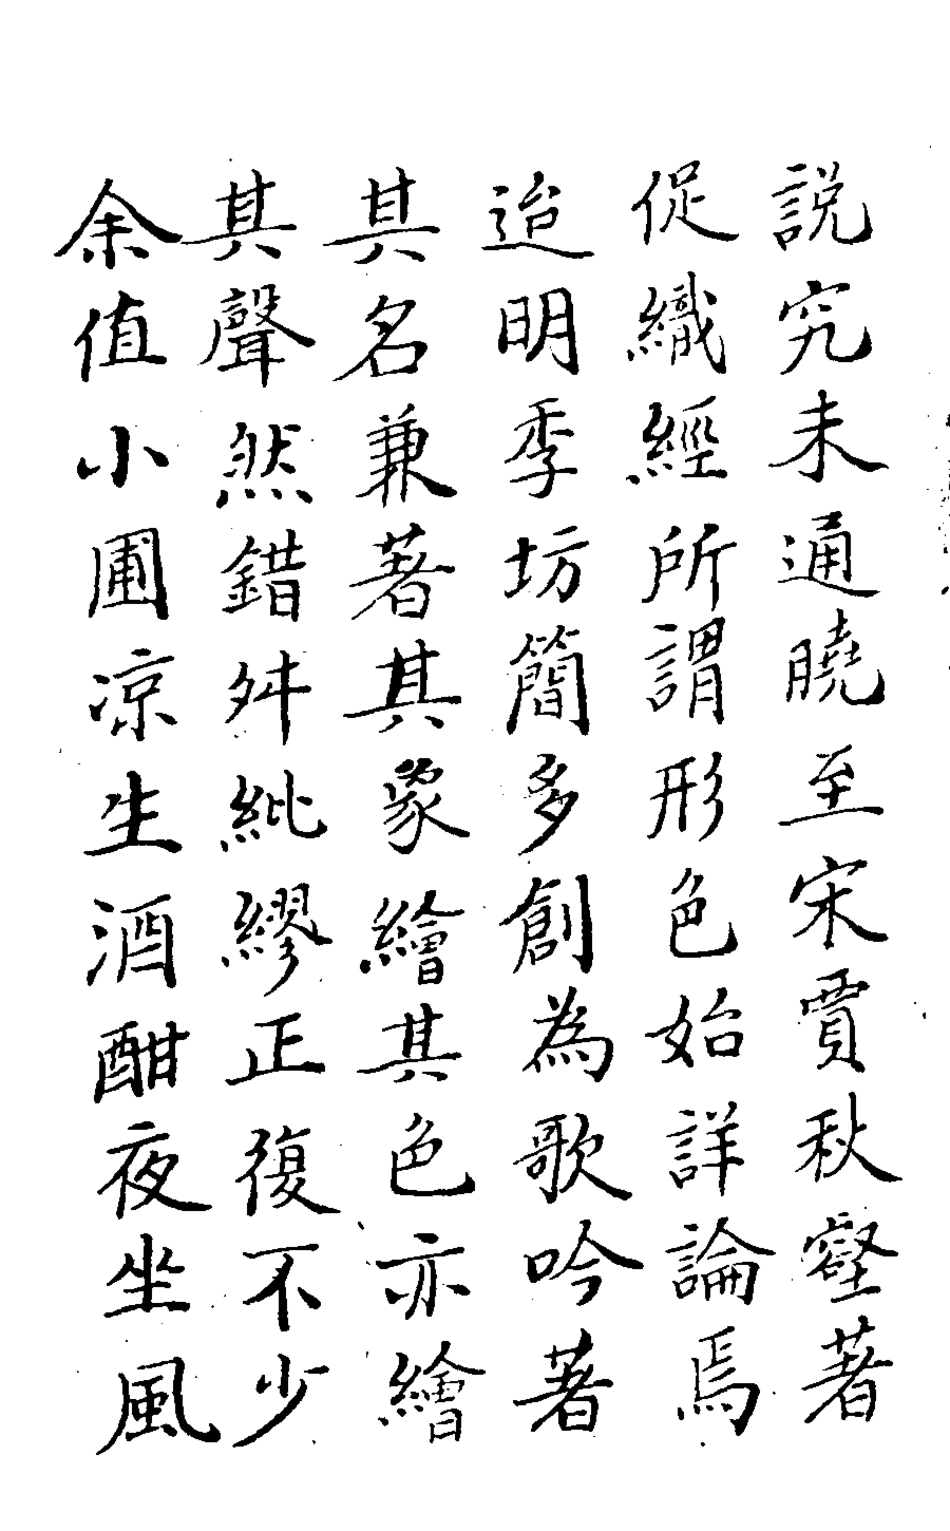 説究未通曉至宋賈秋壑著
促織經所謂形色始詳論焉
迨明季坊簡多創為歌吟著
其名兼著其象繪其色亦繪
其聲然錯舛紕繆正復不少
余值小圃凉生酒酣夜坐風